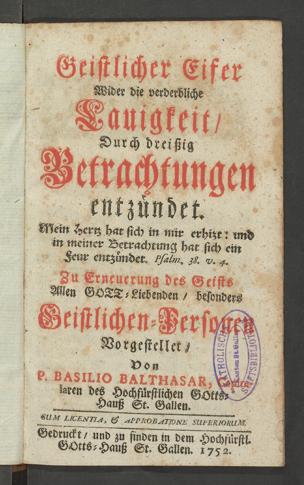 Geistlicher Eifer
Wider die verderbliche
Lauigkeit/
Durch dreißig
Betrachtungen
entzündet.
Mein Hertz hat sich in mir erhizt: und
in meiner Betrachtung hat sich ein
Feur entzündet. Psalm. 38. v. 4.
Zu Erneuerung des Geists
Allen GOTT-Liebenden/ besonders
Geistlichen-Personen
Vorgestellet/
Von
P. BASILIO BALTHASAR,
laren des Hochfürstlichen GOtts-
Hauß St. Gallen.
CUM LICENTIA, & APPROBATIONE SUPERIORUM.
Gedruckt/ und zu finden in dem Hochfürstl.
GOtts-Hauß St. Gallen. 1752.